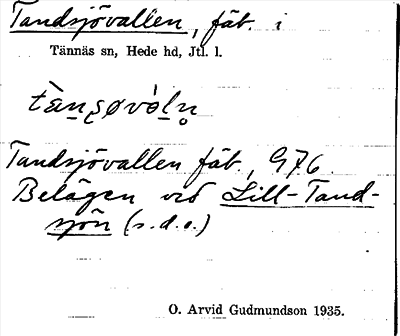 Tandsjövallen, fäb. i
Tännäs sn, Hede hd, Jtl. l.
Tandsjövallen fäb., G 76.
Belägen vid Lill-Tand-
sjön (s.d.o.)
O. Arvid Gudmundson 1935.